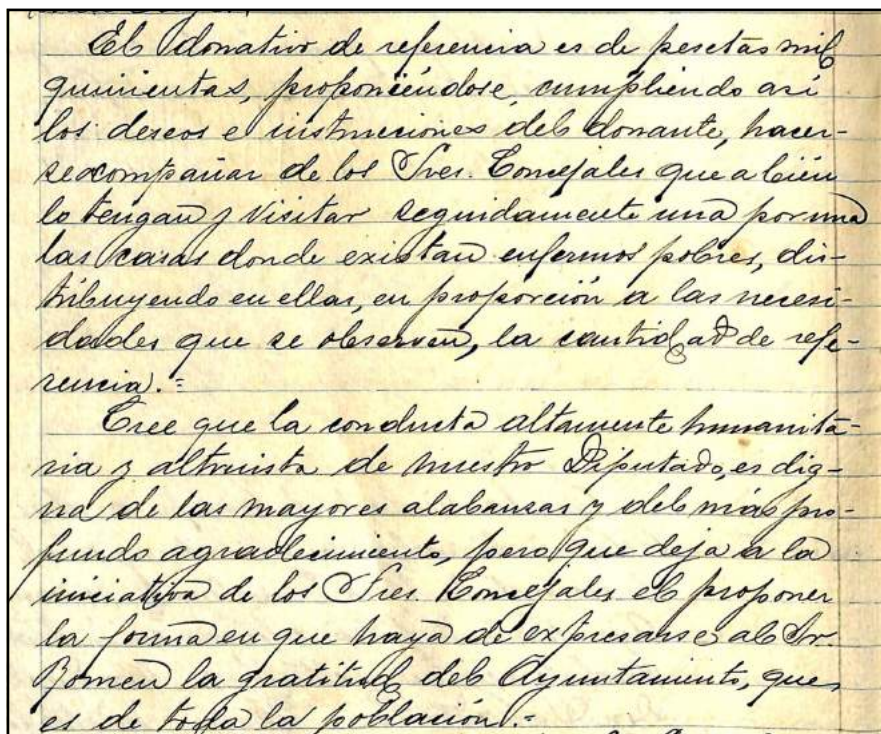 El donativo de referencia es de pesetas mil
quinientas, proponiéndose, cumpliendo asi
los deseos e instrucciones del donante, hacer-
se acompañar de los Sres. Concejales que a bien
lo tengan y visitar seguidamente una por una
las casas donde existan enfermos pobres, dis-
tribuyendo en ellas, en proporción a las necesi-
dades que se observen, la cantidad de refe-
rencia.=
Cree que la conducta altamente humanita-
ria y altruista de nuestro Diputado, es dig-
na de las mayores alabanzas y del más pro-
fundo agradecimiento, pero que deja a la
iniciativa de los Sres. Concejales el proponer
la forma en que haya de expresarse al Sr.
la gratitud del Ayuntamiento, que
es de toda la población.=